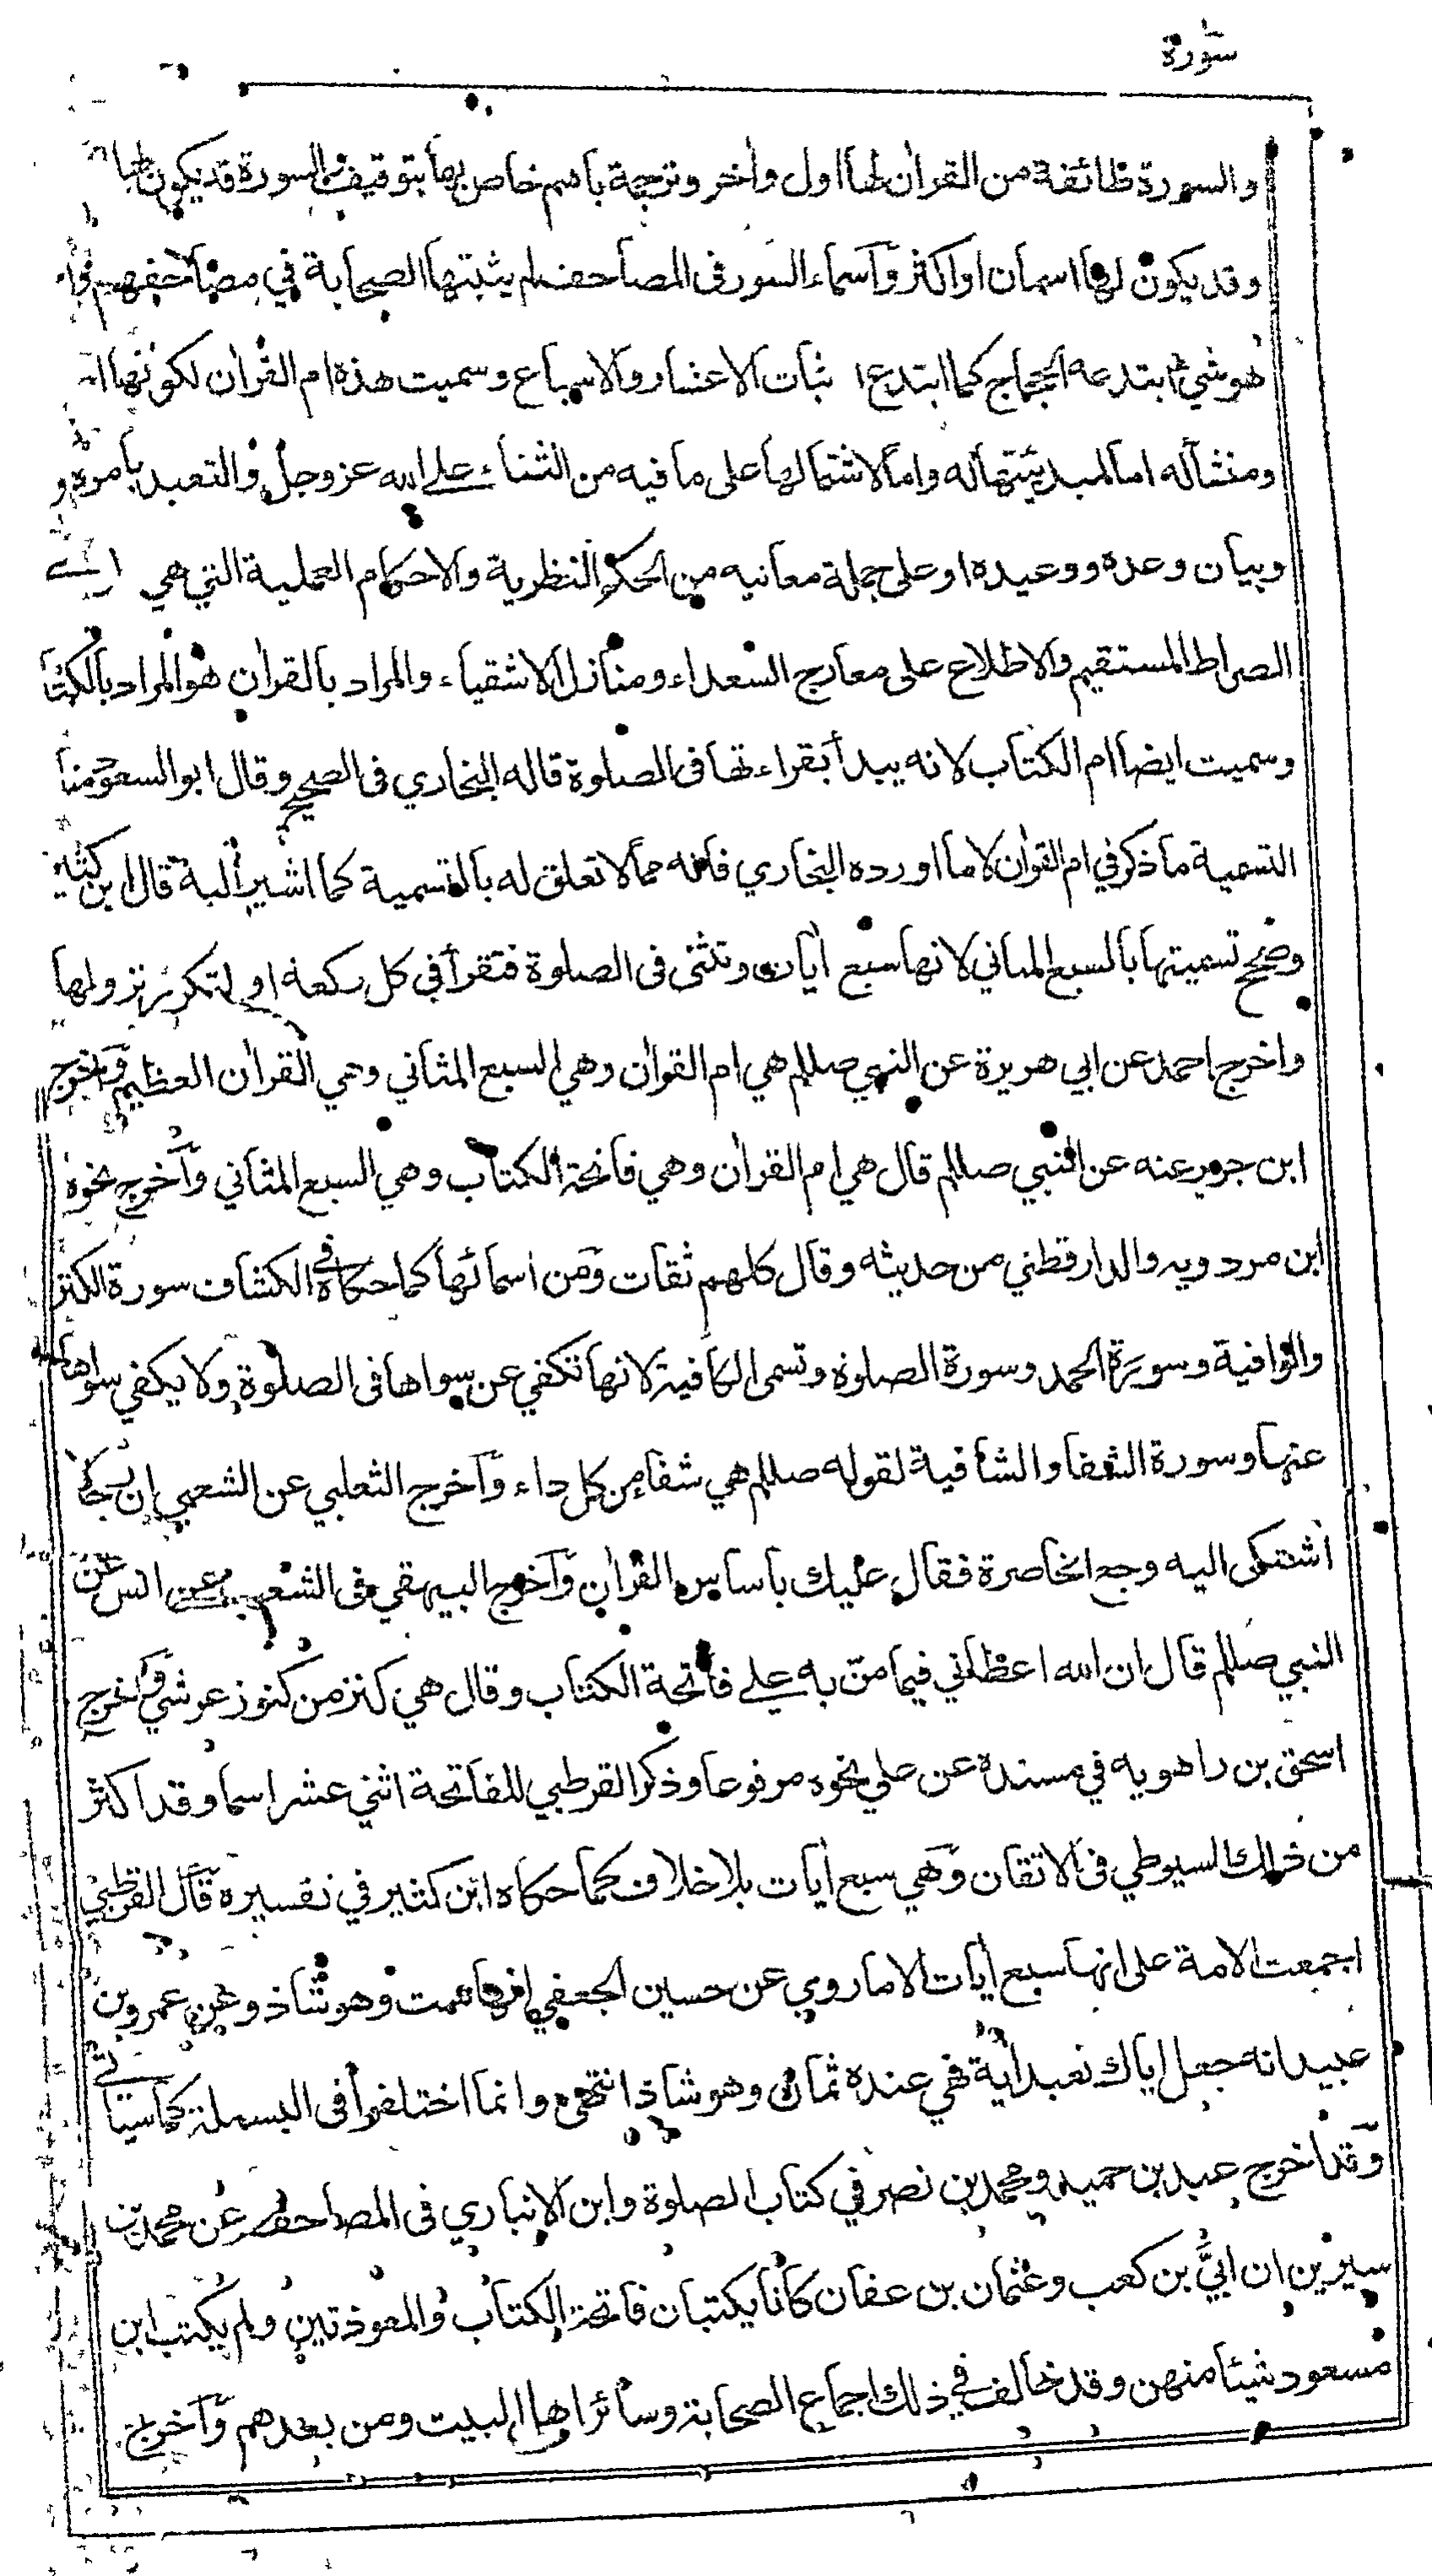 سورة
والسورة طائفة من القرأن لها اول وأخر وترجمة باسم خاص بها بتوقيف والسورة قد يكون لها
وقد يكون لها اسمان او اكثر وآسماء السور فى المصاحف لم يثبتها الصحابة في مصاحفهم وانما
هو شيء ابتدعه الحجاج كما ابتدع اثبات الاعشار والاسباع وسميت هذه ام القرأن لكونها
ومنشأ له اما لمبدئيتها له واما لاشتمالها على ما فيه من الثناء على الله عز وجل والتعبد بامره و
وبيان وعده ووعيده او على جملة معانيه من الحكم النظرية والاحكام العملية التي هي
الصراط المستقيم والاطلاع على معارج السعداء ومنازل الاشقياء والمراد بالقرأن هو المراد بالكتا
وسميت ايضا ام الكتاب لانه يبدأ بقراءتها فى الصلوة قاله البخاري فى الصحيح وقال ابو السعود مناط
التسمية ما ذكر في ام القرأن لا ما اورده البخاري فانه مما لا تعلق له بالتسمية كما اشير اليه قال ابن كثير
وصح تسميتها بالسبع المثاني لانها سبع أيات وتثنى فى الصلوة فتقرأ في كل ركعة او لتكرر نزولها
واخرج احمد عن ابي هريرة عن النبي صللم هي ام القرأن وهي السبع المثاني وهي القرأن العظيم وآخرج
ابن جرير عنه عن النبي صللم قال هي ام القرأن وهي فاتحة الكتاب وهي السبع المثاني وآخرج نحوه
ابن مردويه والدارقطني من حديثه وقال كلهم ثقات ومن اسمائها كما حكاه في الكشاف سورة الكنز
والوافية وسورة الحمد وسورة الصلوة وتسمى الكافية لانها تكفي عن سواها فى الصلوة ولا يكفي سواها
عنها وسورة الشفا والشافية لقوله صللم هي شفاء من كل داء وآخرج الثعلبي عن الشعبي ان رجلا
اشتكى اليه وجع الخاصرة فقال عليك باساس القرأن وآخرج البيهقي فى الشعب عن انس عن
النبي صللم قال ان الله اعطاني فيما منّ به علي فاتحة الكتاب وقال هي كنز من كنوز عرشي وآخرج
اسحق بن راهويه في مسنده عن علي نحوه مرفوعا وذكر القرطبي للفاتحة اثني عشر اسما وقد اكثر
من ذلك السيوطي فى الاتقان وهي سبع أيات بلا خلاف كما حكاه ابن كثير في تفسيره قال القرطبي
اجمعت الامة على انها سبع أيات الا ما روي عن حسين الجعفي انها ست وهو شاذ وعن عمرو بن
عبيد انه جعل اياك نعبد أية فهي عنده ثمان وهو شاذ انتهى وانما اختلفوا فى البسملة كما سيأتي
وقد اخرج عبد بن حميد ومحمد بن نصر في كتاب الصلوة وابن الانباري فى المصاحف عن محمد بن
سيرين ان ابيّ بن كعب وعثمان بن عفان كانا يكتبان فاتحة الكتاب والمعوذتين ولم يكتب ابن
مسعود شيئا منهن وقد خالف في ذلك اجماع الصحابة وسائر اهل البيت ومن بعدهم وآخرج